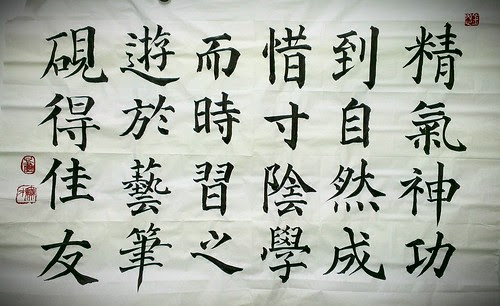 精氣神功
到自然成
惜寸陰學
而時習之
遊於藝筆
硯得佳友